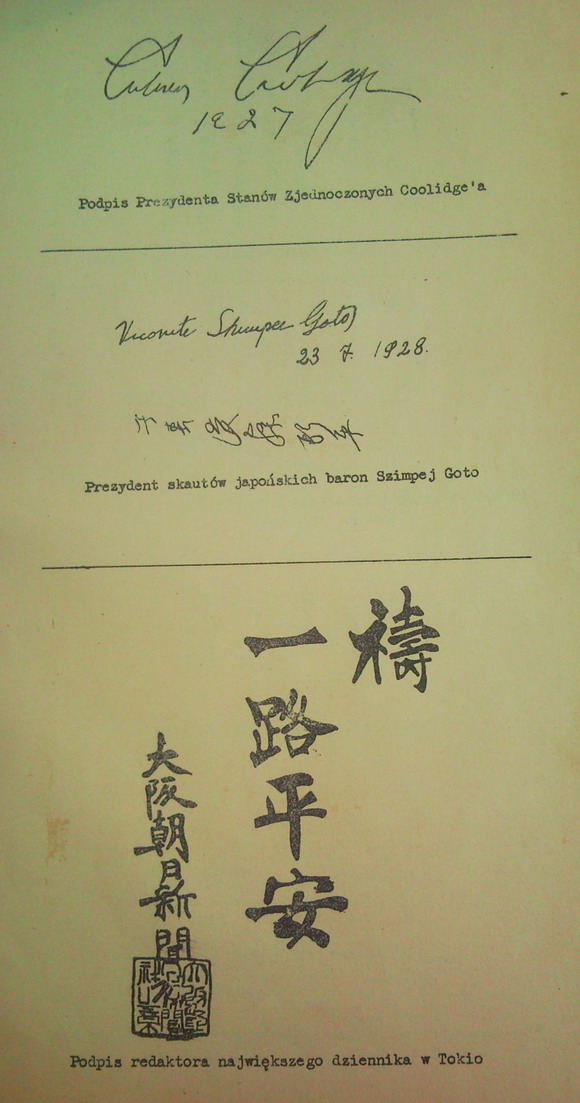 Calvin Coolidge
1927
Podpis Prezydenta Stanów Zjednoczonych Coolidge'a
Viconite Shimpei Goto
23 7. 1928.
Prezydent skautów japońskich baron Szimpej Goto
禱
一路平安
大阪朝日新聞
Podpis redaktora największego dziennika w Tokio